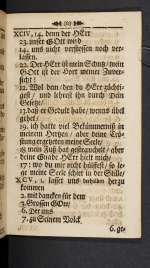 (6)
XCIV, 14. denn der HErr
23. unser GOtt wird
14. uns nicht verstossen noch ver-
lassen.
22. Der HErr ist mein Schutz/ mein
GOtt ist der Hort meiner Zuver-
sicht!
12. Wol dem/ den du HErr züchti-
gest/ und lehrest ihn durch Dein
Gesetze/
13. daß er Gedult habe/ wenns übel
gehet/
19. ich hatte viel Bekümmerniß in
meinem Hertzen/ aber deine Trö-
stung ergetzeten meine Seele/
18. mein Fuß hat gestrauchelt/ aber
deine Gnade HErr hielt mich/
17: wo du mir nicht hülffest/ so le-
ge meine Seele schier in der Stille/
XCV, 1. lasset uns herzu
kommen
2. mit dancken für dem
3. Grossen GOtt/
6. Der uns
7. zu Seinem Volck
6. ge-